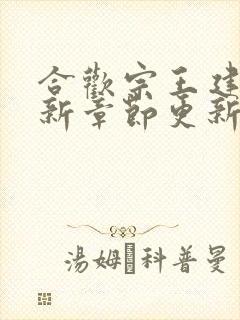 合歡宗王建
新章節更新
湯姆·科普曼